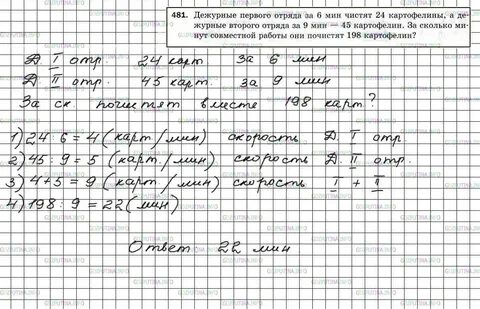 481. Дежурные первого отряда за 6 мин чистят 24 картофелины, а де-
журные второго отряда за 9 мин — 45 картофелин. За сколько ми-
нут совместной работы они почистят 198 картофелин?
Д I отр. 24 карт за 6 мин
Д II отр. 45 карт. за 9 мин
За ск. почистят вместе 198 карт?
1) 24 : 6 = 4 (карт/мин) скорость Д. I отр
2) 45 : 9 = 5 (карт./мин) скорость Д. II отр.
3) 4 + 5 = 9 (карт/мин) скорость I + II
4) 198 : 9 = 22 (мин)
Ответ 22 мин